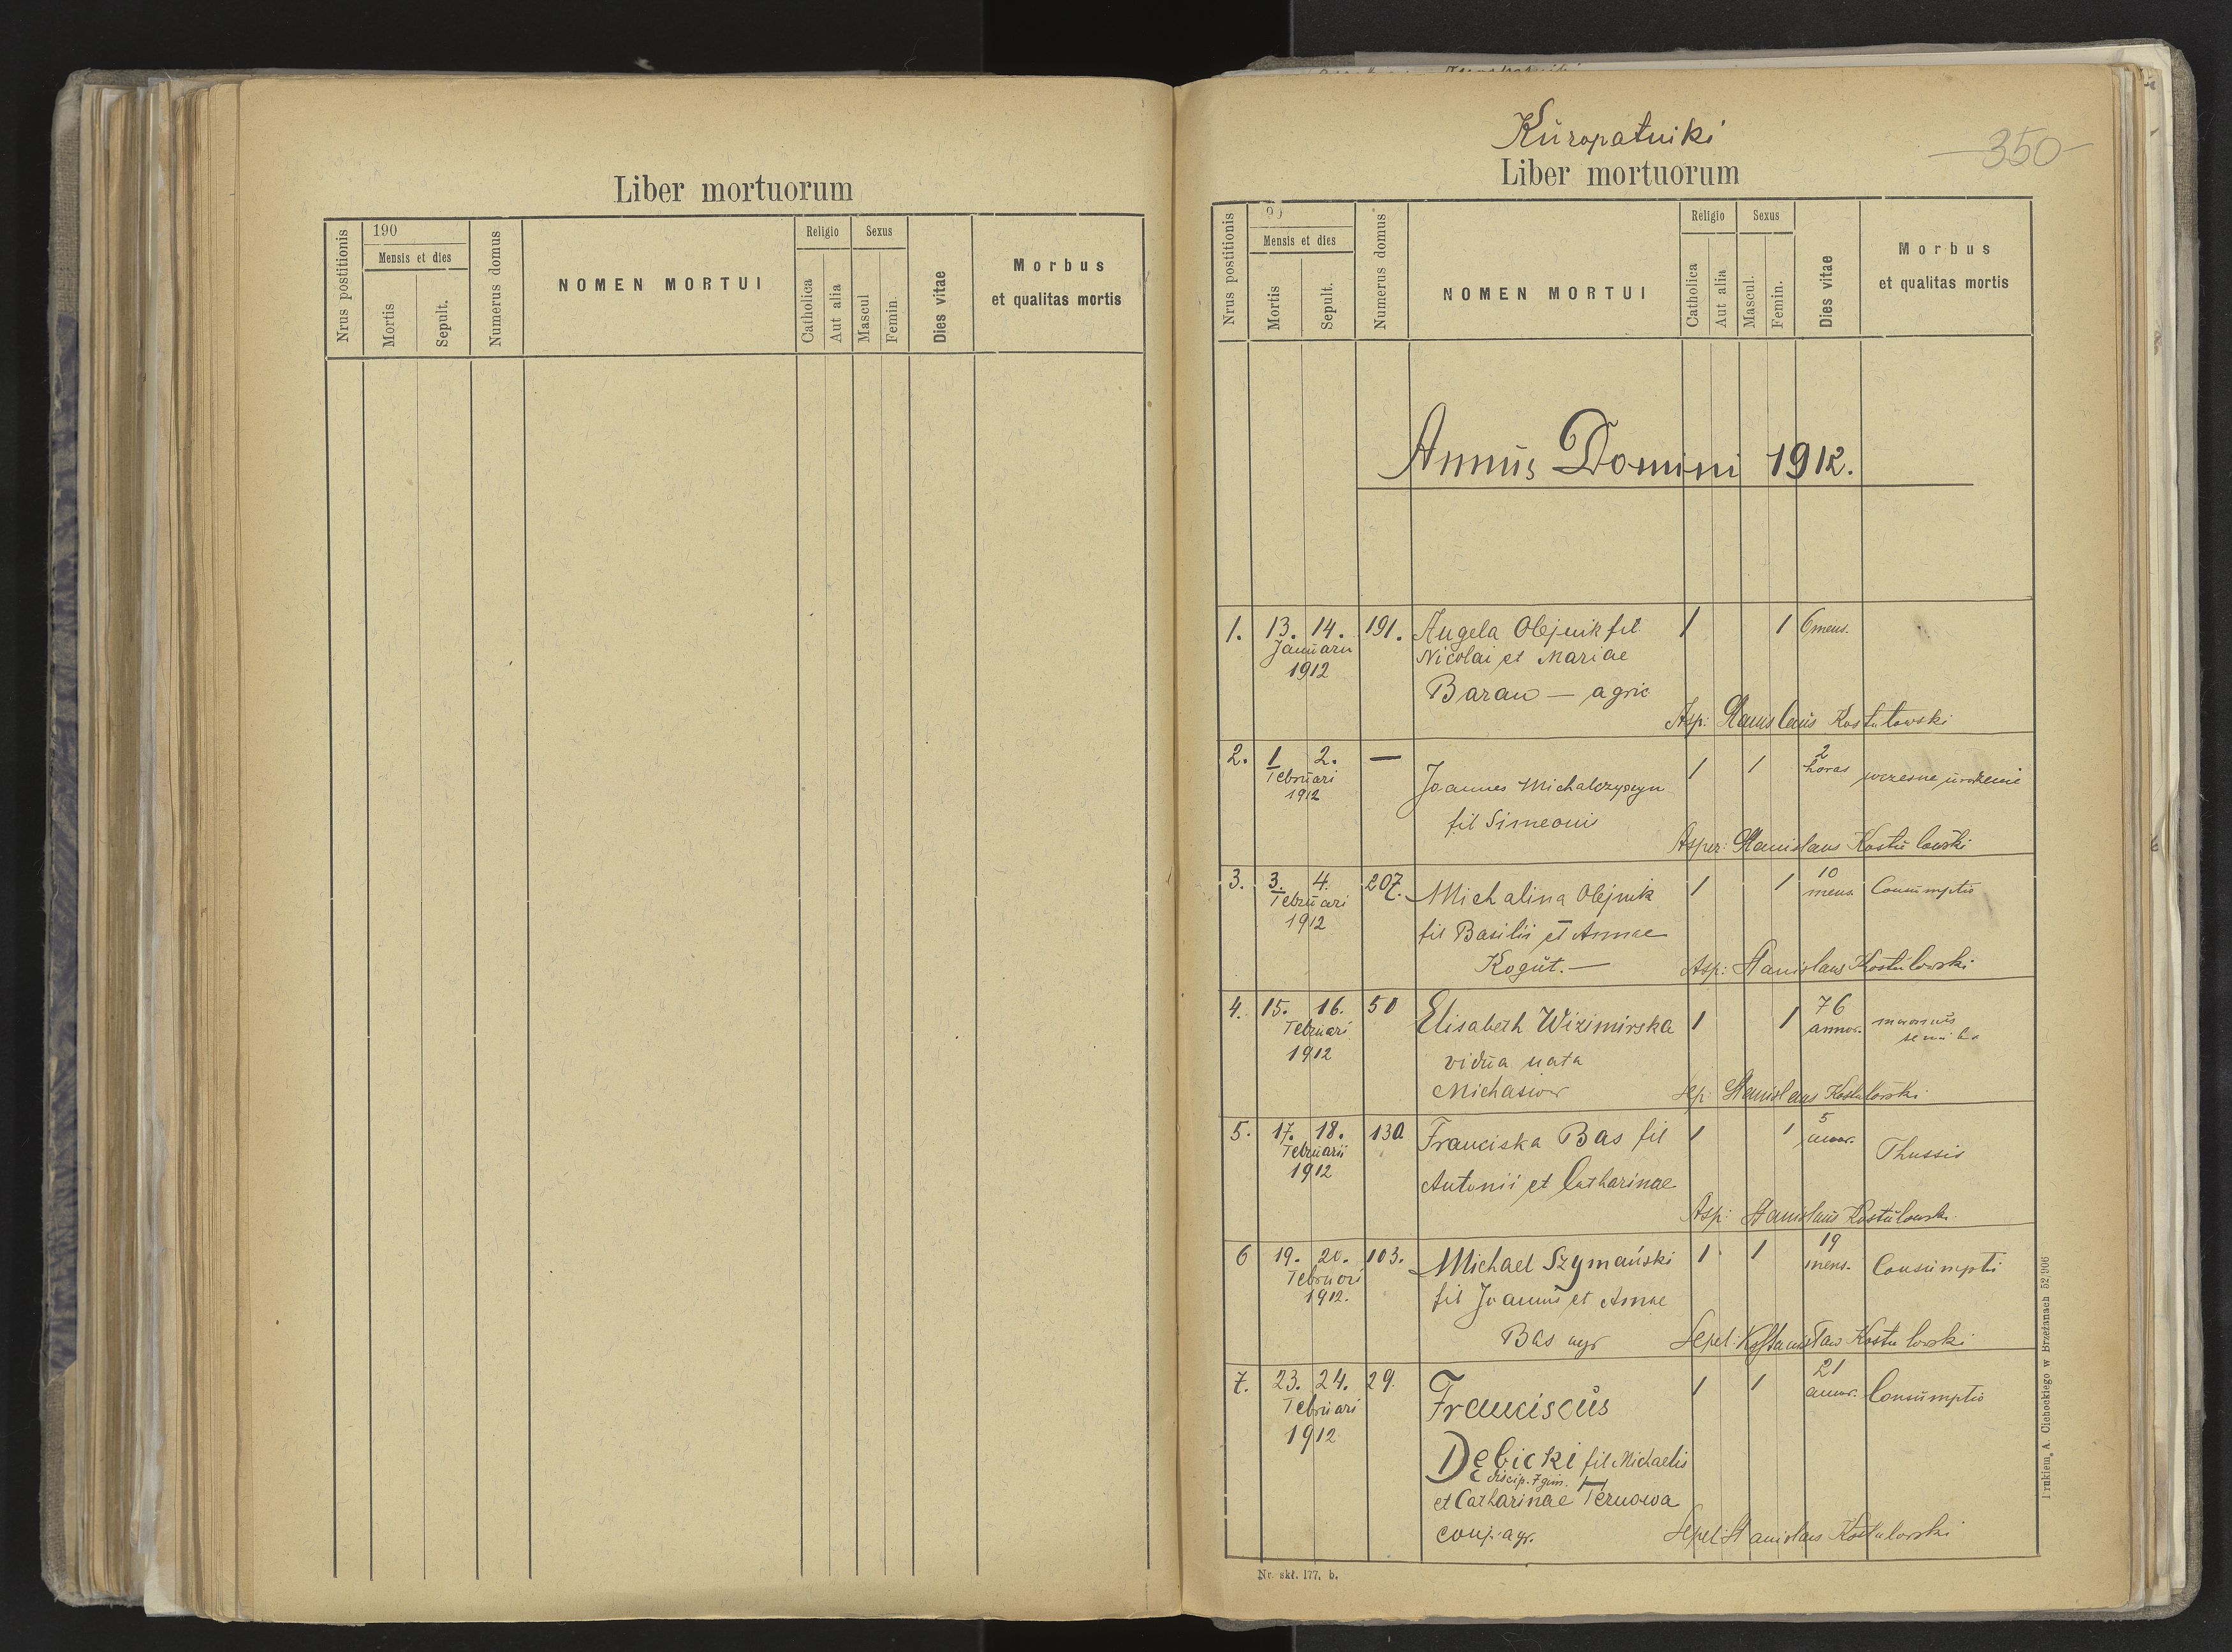 Liber mortuorum
Nrus postitionis
190
Mensis et dies
Mortis
Sepult.
Numerus domus
NOMEN MORTUI
Religio
Catholica
Aut alia
Sexus
Mascul
Femin.
Dies vitae
Morbus
et qualitas mortis
Kuropatniki
350
Liber mortuorum
Nrus postitionis
Mensis et dies
Mortis
Sepult.
Numerus domus
NOMEN MORTUI
Religio
Catholica
Aut alia
Sexus
Mascul.
Femin.
Dies vitae
Morbus
et qualitas mortis
Annus Domini 1912.
1. 13. 14. 191. Angela Olejnik fil 1 1 6 mens.
Januarii Nicolai et Mariae
1912
Baran — agric
Asp: Stanislaus Kostulowski
2. 1 2. — 1 1 2 horas wczesne urodzenie
Februari
1912
Joannes Michalczyszyn
fil Simeonis
Asper: Stanislaus Kostulowski
3. 3. 4. 207. Michalina Olejnik 1 1 10 mens. Consumptio
Februari
1912
fil Basilii et Annae
Kogut. —
Asp: Stanislaus Kostulowski
4. 15. 16. 50 Elisabeth Wizimirska 1 1 76 annor.
Februari
1912
vidua nata
Sep: Stanislaus Kostulowski
5. 17. 18. 130 Franciska Bas fil 1 1 5 annor. Thussis
Februarii
1912
Antonii et Catharinae
Asp: Stanislaus Kostulowski
6 19. 20. 103. Michael Szymański 1 1 19 mens. Consumpti
Februari
1912.
fil Joannis et Annae
Bas agr
Sepel: Stanisław Kostulowski
7. 23. 24. 29. Franciscus 1 1 21 annor. Consumptio
Februari
1912
Dębicki fil Michaelis
discip. 7 gim.
et Catharinae Ternowa
conj. agr.
Sepel: Stanislaus Kostulowski
Nr. skł. 177. b.
Drukiem A. Cichockiego w Brzeżanach 52/906